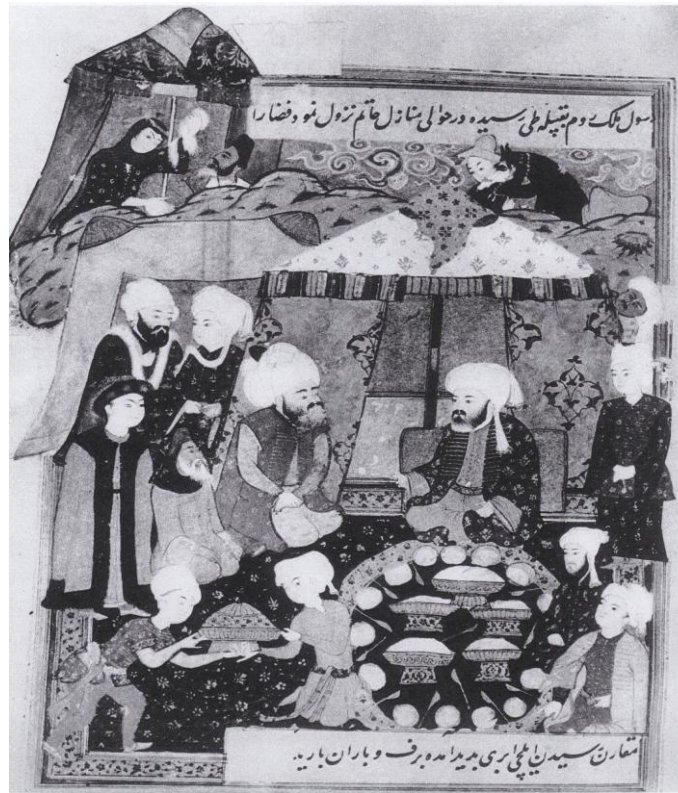 رسول ملک روم بقبیله طی رسیده در حوالی منازل حاتم نزول نمود قضا را
مقارن رسیدن ایلچی ابری بدید آمده برف و باران بارید